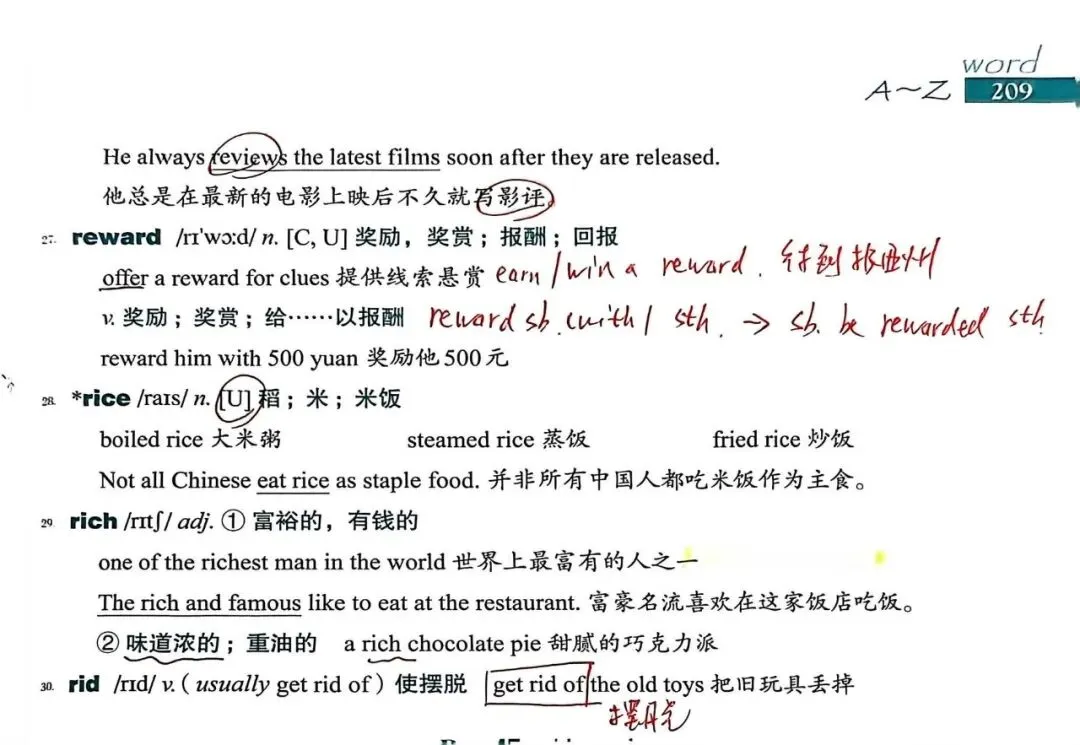 word
A～Z 209
He always reviews the latest films soon after they are released.
他总是在最新的电影上映后不久就写影评。
27. reward /rɪ'wɔːd/ n. [C, U] 奖励，奖赏；报酬；回报
offer a reward for clues 提供线索悬赏 earn / win a reward. 得到报酬
v. 奖励；奖赏；给……以报酬 reward sb. (with) sth. → sb. be rewarded sth
reward him with 500 yuan 奖励他500元
28. *rice /raɪs/ n. [U] 稻；米；米饭
boiled rice 大米粥 steamed rice 蒸饭 fried rice 炒饭
Not all Chinese eat rice as staple food. 并非所有中国人都吃米饭作为主食。
29. rich /rɪtʃ/ adj. ① 富裕的，有钱的
one of the richest man in the world 世界上最富有的人之一
The rich and famous like to eat at the restaurant. 富豪名流喜欢在这家饭店吃饭。
② 味道浓的；重油的 a rich chocolate pie 甜腻的巧克力派
30. rid /rɪd/ v. ( usually get rid of ) 使摆脱 get rid of the old toys 把旧玩具丢掉
摆脱